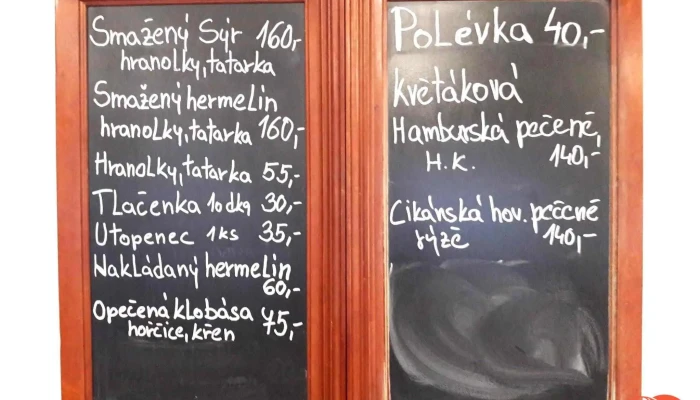 Smažený Sýr 160,-
hranolky, tatarka
Smažený hermelin
hranolky, tatarka 160,-
Hranolky, tatarka 55,-
Tlačenka 10 dkg 30,-
Utopenec 1ks 35,-
Nakládaný hermelin
60,-
Opečená klobása 75,-
hořčice, křen
PoLévka 40,-
Květáková
Hamburská pečeně,
H.K. 140,-
Cikánská hov. pečeně
rýže 140,-